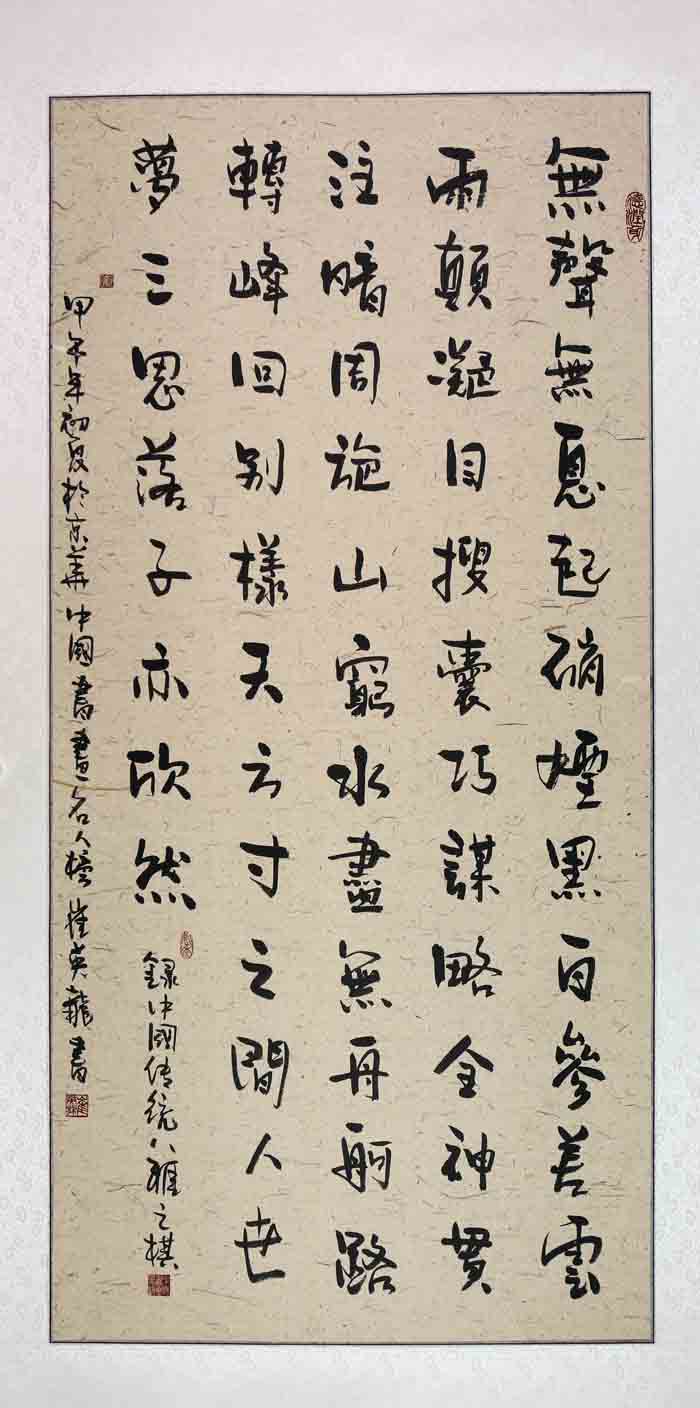 無聲無息起硝煙黑白參差雲
雨顛凝目搜囊巧謀略全神貫
注暗周旋山窮水盡無舟舸路
轉峰回別樣天方寸之間人世
夢三思落子亦欣然
錄中國传統八雅之棋
甲午年初夏於京華中國書畫名人崔英龍書